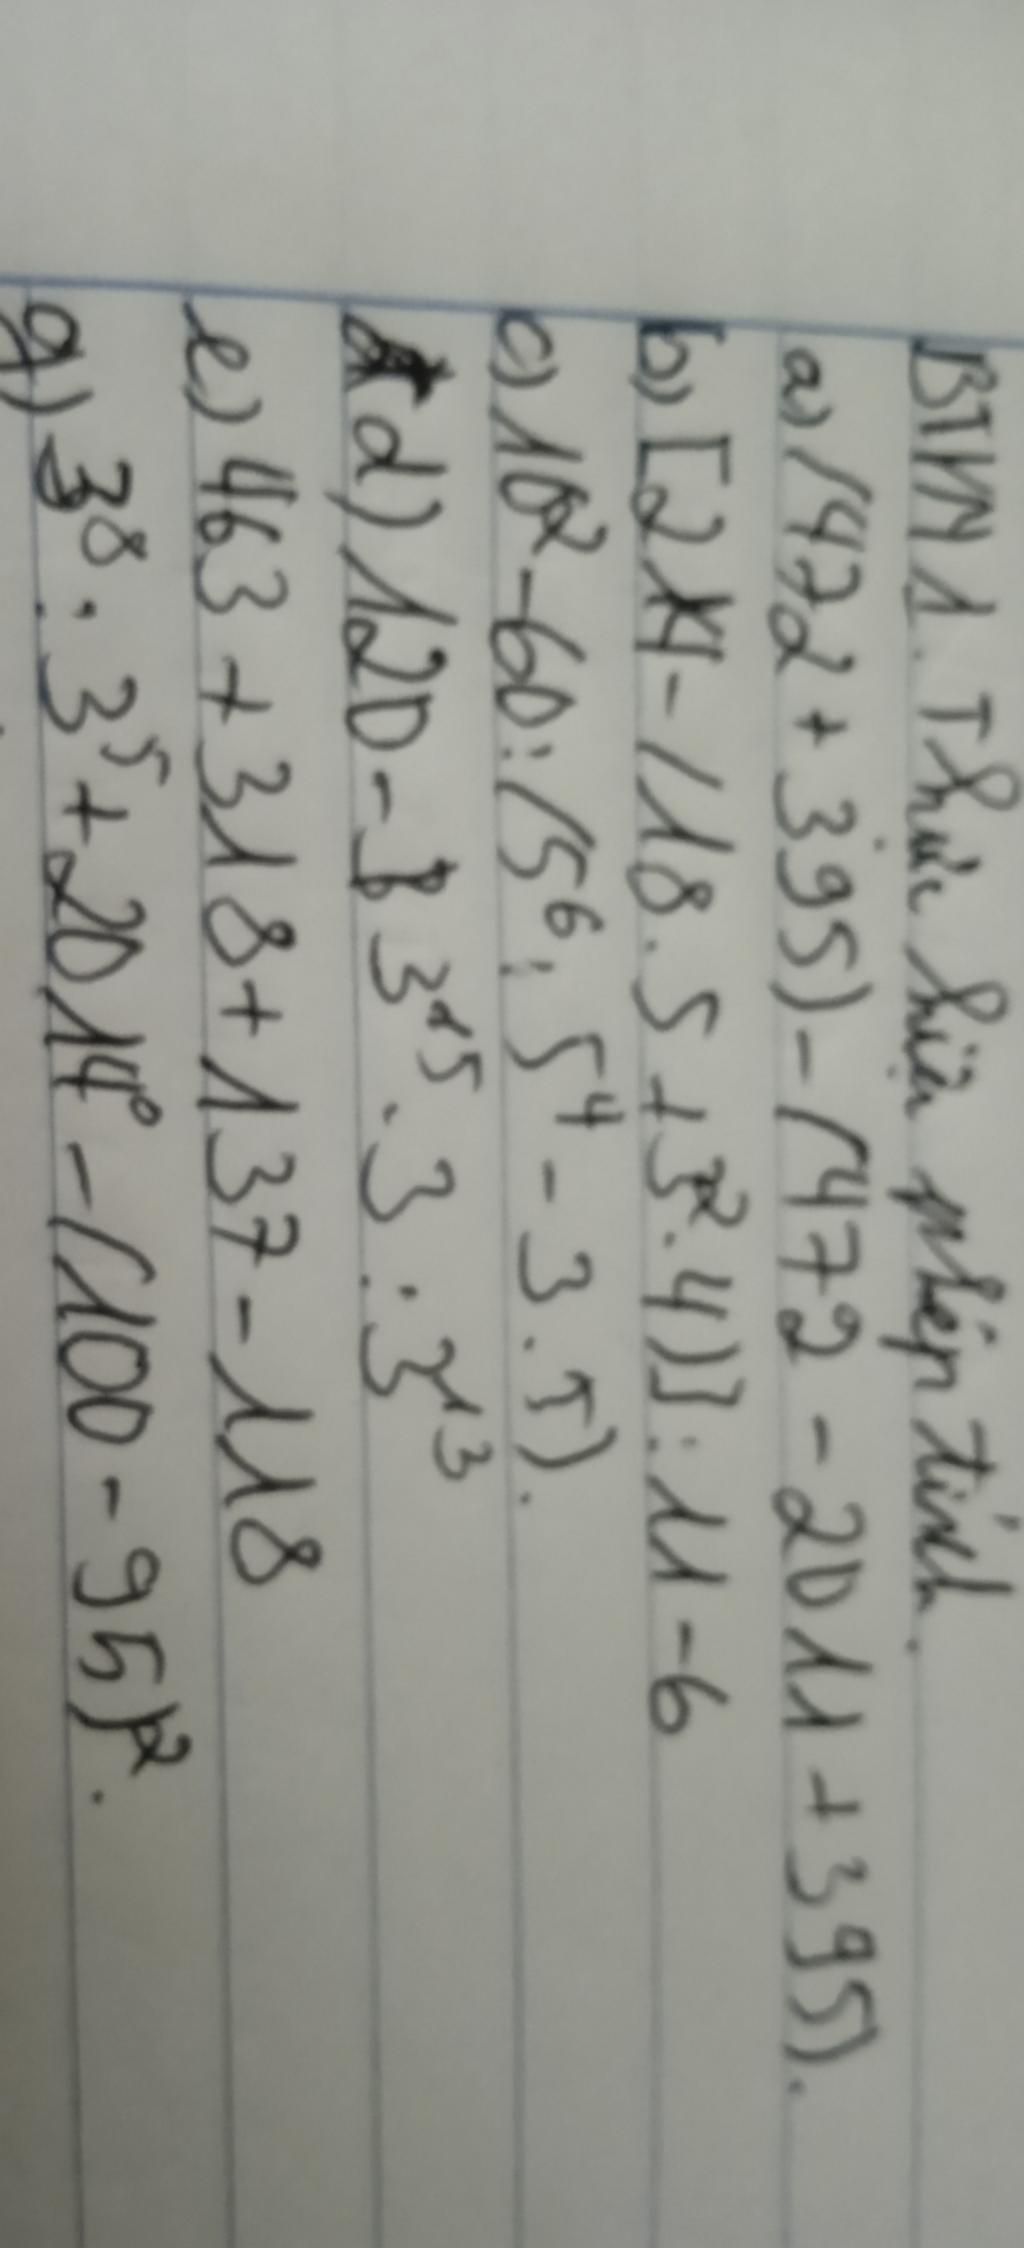 BTVN 1. Thực hiện phép tính.
a) (472 + 395) - (472 - 2011 + 395).
b) [214 - (18.5 + 3².4)] : 11 - 6
c) 10² - 60 : (5⁶ : 5⁴ - 3.5).
d) 120 - 3¹⁵ . 3 : 3¹³
e) 463 + 318 + 137 - 118
g) 3⁸ : 3⁵ + 2014⁰ - (100 - 95)².